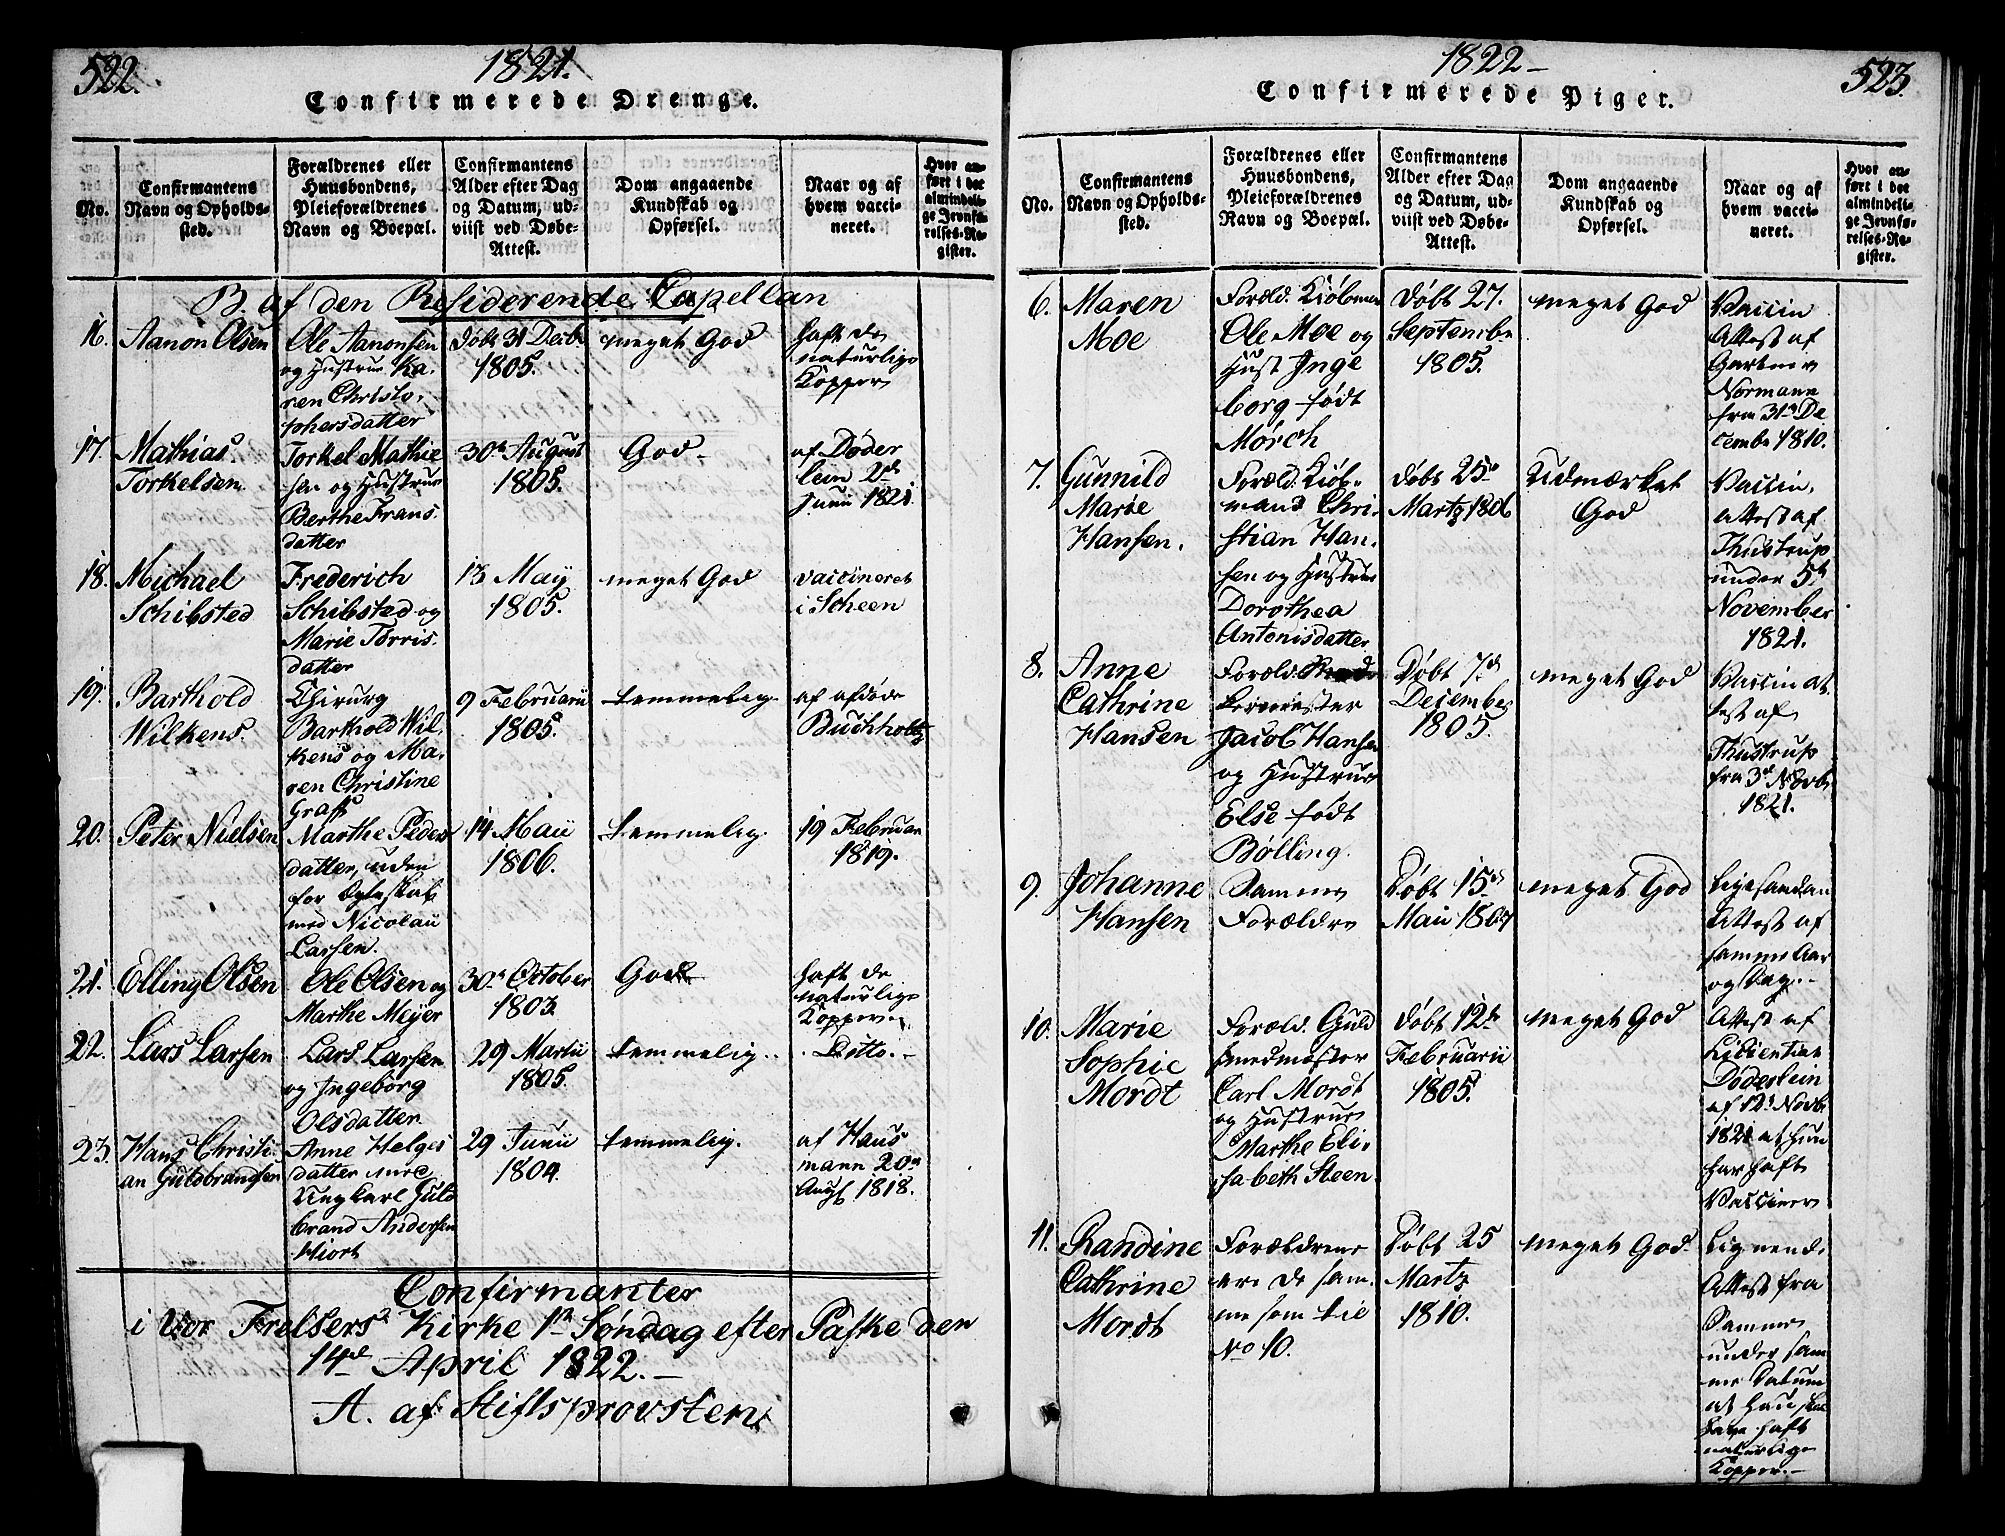 522.
1821.
Confirmerede Drenge.
No.
Confirmantens
Navn og Opholds-
sted.
Forældrenes eller
Huusbondens,
Pleieforældrenes
Navn og Boepæl.
Confirmantens
Alder efter Dag
og Datum, ud-
viist ved Døbe-
Attest.
Dom angaaende
Kundskab og
Opførsel.
Naar og af
hvem vacci-
neret.
Hvor an-
ført i det
almindeli-
ge Jevnfø-
relses-Re-
gister.
B. af den Residerende Capellan
16.
Aanon Olsen
Ole Aanonsen
og Hustrue Ka-
ren Christo-
phersdatter
Døbt 31 Decbr
1805.
meget God
haft de
naturlige
Kopper
17.
Mathias
Torkelsen
Torkel Mathie
sen og Hustrue
Berthe Frans
datter
30te August
1805.
God
af Døder
lein 2den
Junii 1821
18.
Michael
Schibsted
Frederich
Schibsted og
Marie Torris
datter
13 May
1805.
meget God
vaccineret
i Scheen
19.
Barthold
Wilkens.
Chirurg
Barthold Wil-
kens og Ma-
ren Christine
Graff
9 Februarii
1805.
temmelig
af afdøde
Buchholtz
20.
Peter Nielsen
Marthe Peders
datter, uden
for Ægteskab
med Nicolaii
Larsen.
14 Maii
1806.
temmelig
19 Februar
1819.
21.
Elling Olsen
Ole Olsen og
Marthe Meyer
30te October
1803.
God
haft de
naturlige
Kopper
22.
Lars Larsen
Lars Larsen
og Ingeborg
Olsdatter
29 Martii
1805.
temmelig
Ditto.
23.
Hans Christi-
an Guldbrandsen
Anne Helges
datter med
Ungkarl Guld
brand Andersen
Hiort
29 Junii
1804.
temmelig.
af Haus
mann 20de
Aug 1818.
Confirmanter
i Vor Frelsers Kirke 1ste Søndag efter Paaske den
14de April 1822.
A. af Stiftsprovsten
1822
523.
Confirmerede Piger.
No.
Confirmantens
Navn og Opholds-
sted.
Forældrenes eller
Huusbondens,
Pleieforældrenes
Navn og Boepæl.
Confirmantens
Alder efter Dag
og Datum, ud-
viist ved Døbe-
Attest.
Dom angaaende
Kundskab og
Opførsel.
Naar og af
hvem vacci-
neret.
Hvor an-
ført i det
almindeli-
ge Jevnfø-
relses-Re-
gister.
6.
Maren
Moe
Foræld. Kiøbmand
Ole Moe og
Hust Inge
borg født
Mørch
Døbt 27.
Septembr
1805.
meget God
Vaccin
Attest af
Gartner
Normann
fra 31te De
cembr 1810.
7.
Gunnild
Marie
Hansen.
Foræld. Kiøb-
mand Chri-
stian Han-
sen og Hustrue
Dorothea
Antonisdatter
Døbt 25de
Martz 1806
Udmærket
God
Vaccin.
attest af
Thustrup
under 5te
November
1821.
8.
Anne
Cathrine
Hansen
Foræld.
Jacob Hansen
og Hustrue
Else født
Bølling.
Døbt 7de
December
1805.
meget God
Vaccin at
test af
Thustrup
fra 3de Novbr
1821.
9.
Johanne
Hansen
Samme
Forældre
Døbt 15de
Maii
meget God
Ligesaadan
Attest af
samme Aar
og Dag.
10.
Marie
Sophie
Mordt
Foræld. Guld
smedmester
Carl Mordt
og Hustrue
Marthe Eli-
sabeth Steen
Døbt 12te
Februarii
1805.
meget God
Attest af
Licentiat
Døderlein
af 12te Novbr
1821 at hun
har haft
Vacciner
11.
Randine
Cathrine
Mordt
Forældrene
ere de sam-
me som til
No 10.
Døbt 25
Martz
1810.
meget God
Lignende
Attest fra
Samme
under sam
me Datum
at hun skal
have haft
naturlige
Kopper.